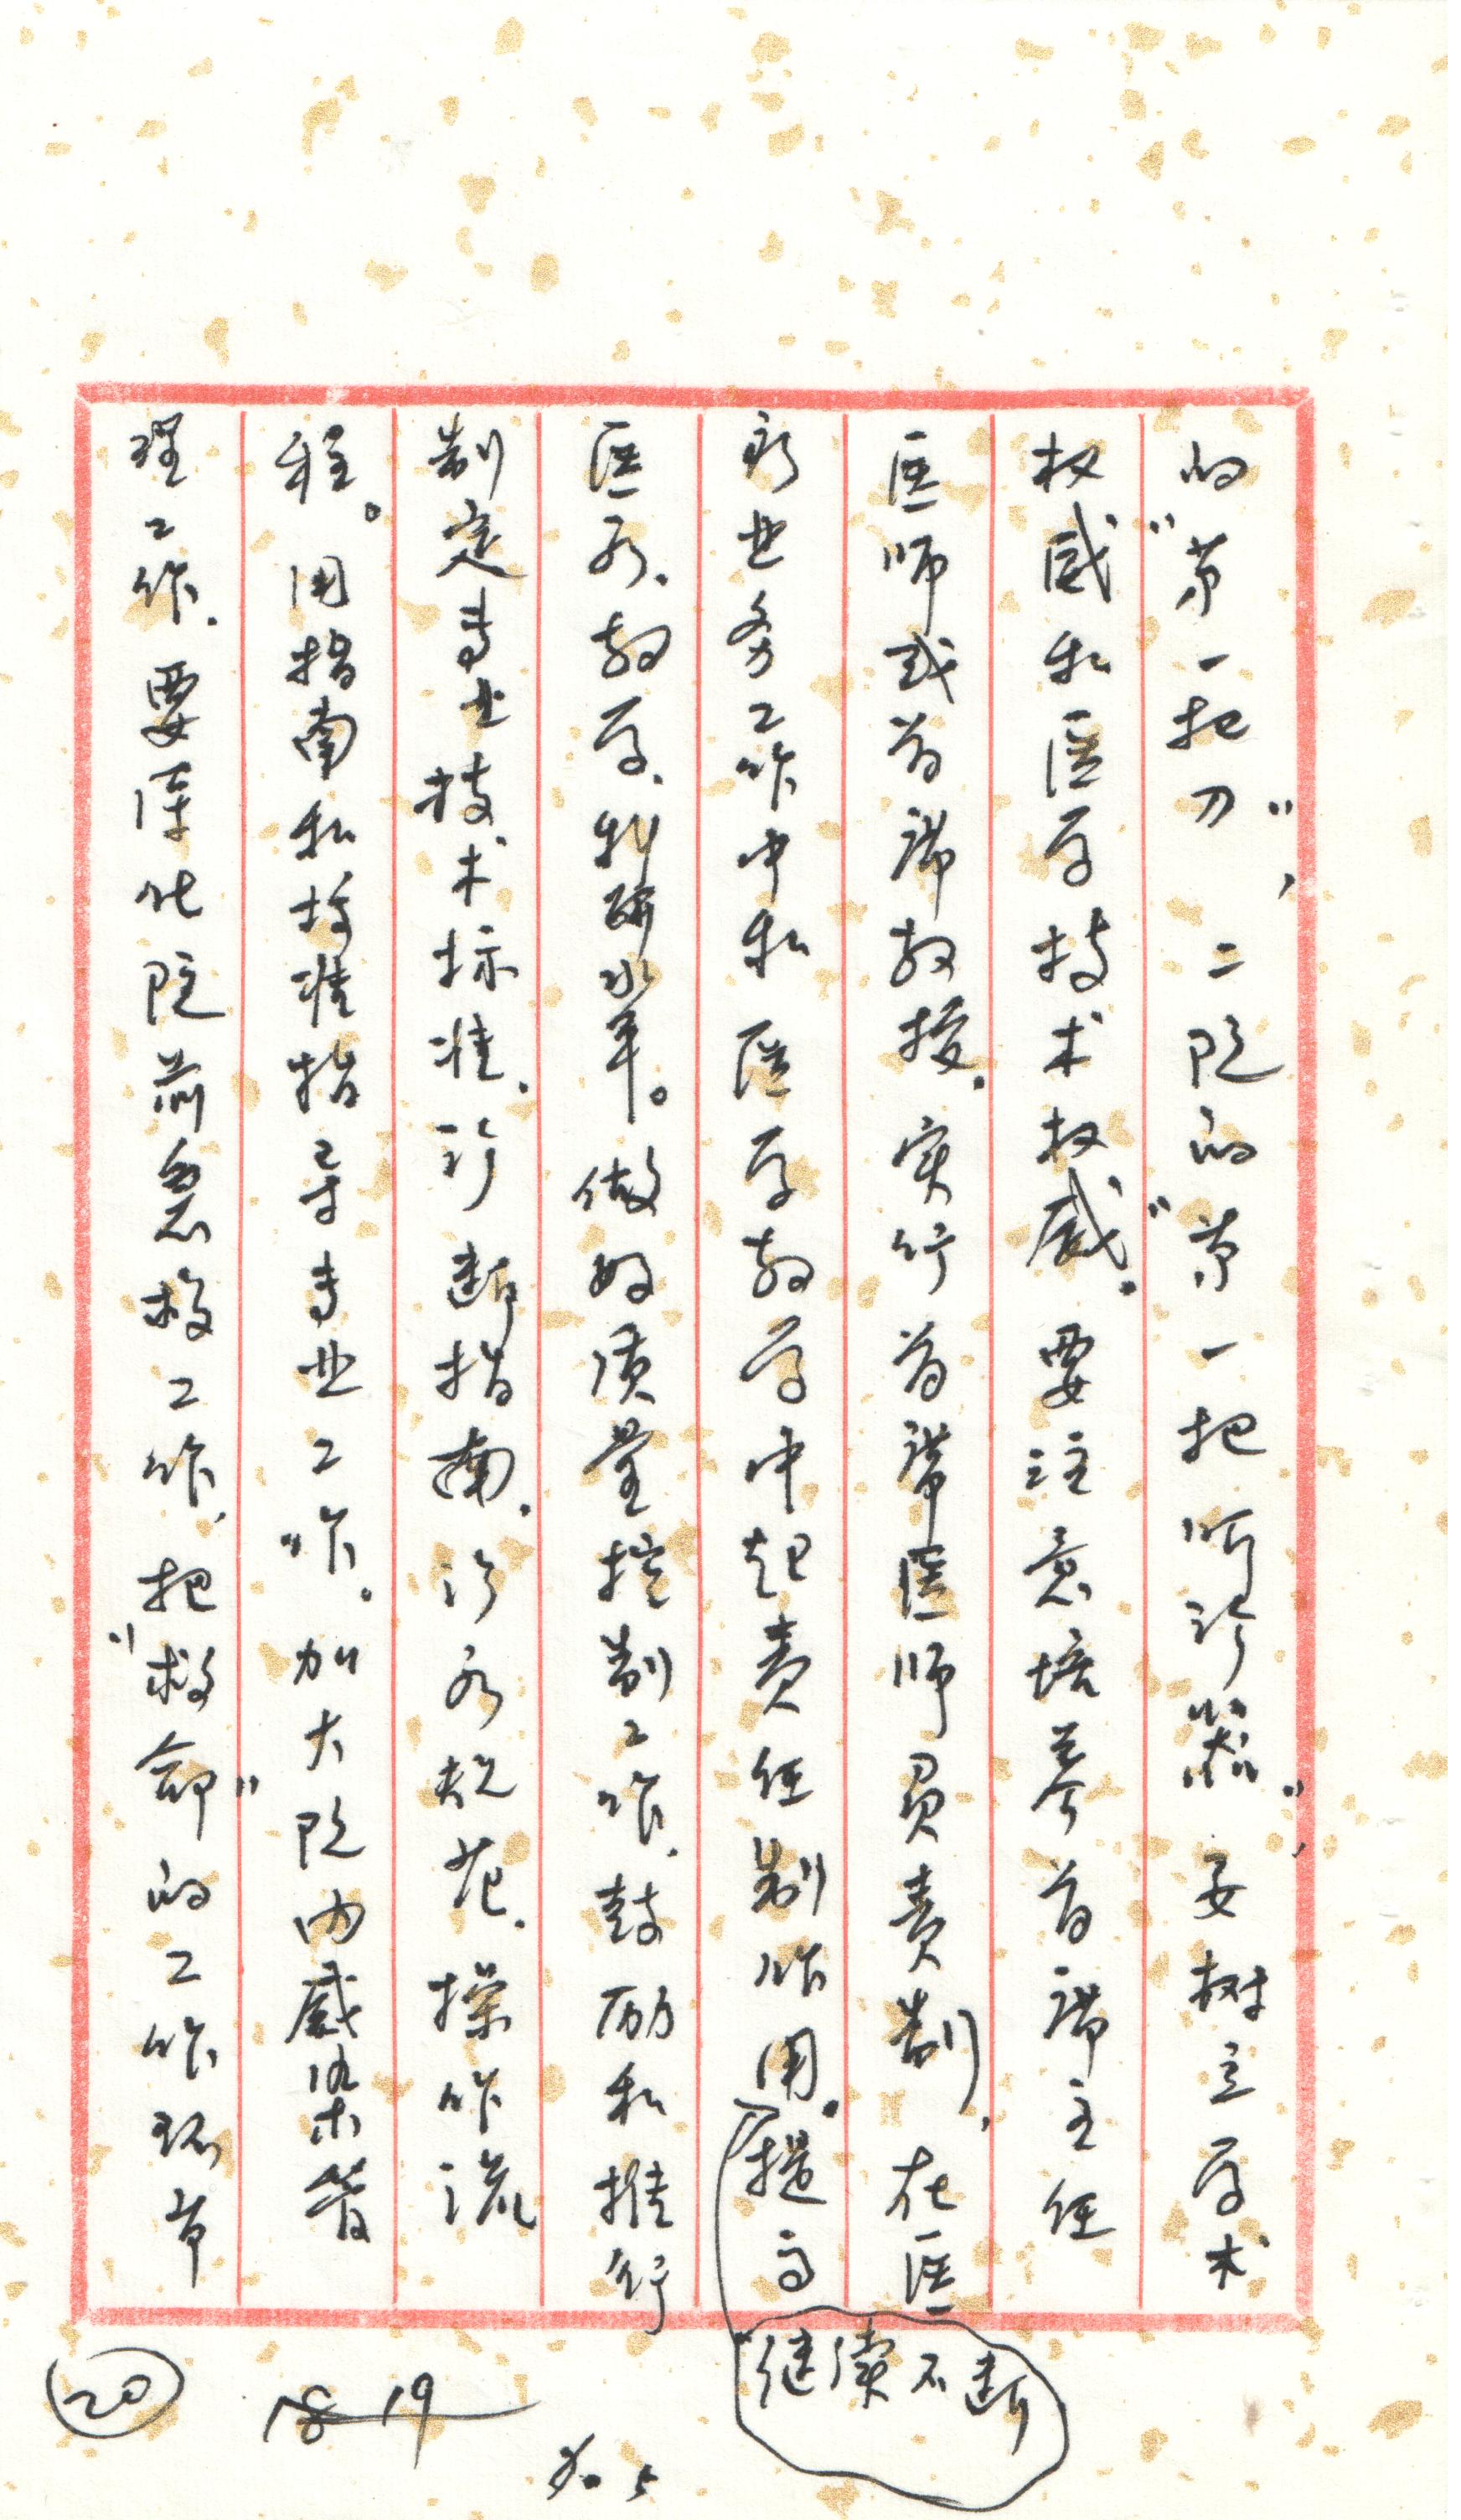 的“第一把刀”，二院的“第一把听诊器”，要树立学术
权威和医学技术权威。要注意培养首席主任
医师或首席教授。实行首席医师负责制，在医
疗业务工作中和医学教学中起责任制作用。提高
继续不断
医疗、教学、科研水平。做好质量控制工作，鼓励和推行
制定专业技术标准、诊断指南、诊疗规范、操作流
程。用指南和标准指导专业工作。加大院内感染管
理工作，要强化院前急救工作，把“救命”的工作环节
18 19
20